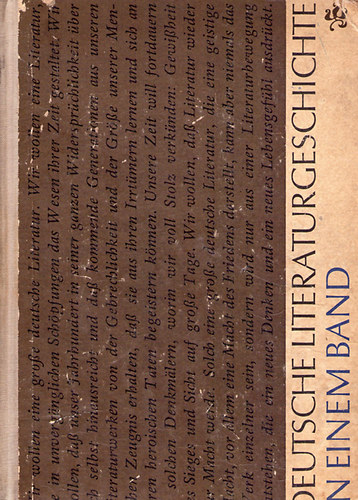 r wollen eine große deutsche Literatur. Wir wollen eine Literatur,
e in unvergänglichen Schöpfungen das Wesen ihrer Zeit gestaltet. Wir
ollen, daß unser Jahrhundert in seiner ganzen Widersprüchlichkeit über
ch selbst hinausreicht und daß kommende Generationen aus unseren
teraturwerken von der Gebrechlichkeit und der Größe unserer Men-
hen Zeugnis erhalten, daß sie aus ihren Irrtümern lernen und sich an
ren heroischen Taten begeistern können. Unsere Zeit will fortdauern
solchen Denkmälern, worin wir voll Stolz verkünden: Gewißheit
es Sieges und Sicht auf große Tage. Wir wollen, daß Literatur wieder
Macht werde. Solch eine große deutsche Literatur, die eine geistige
acht, vor allem eine Macht des Friedens darstellt, kann aber niemals das
erk einzelner sein, sondern wird nur aus einer Literaturbewegung
tstehen, die ein neues Denken und ein neues Lebensgefühl ausdrückt
DEUTSCHE LITERATURGESCHICHTE
N EINEM BAND